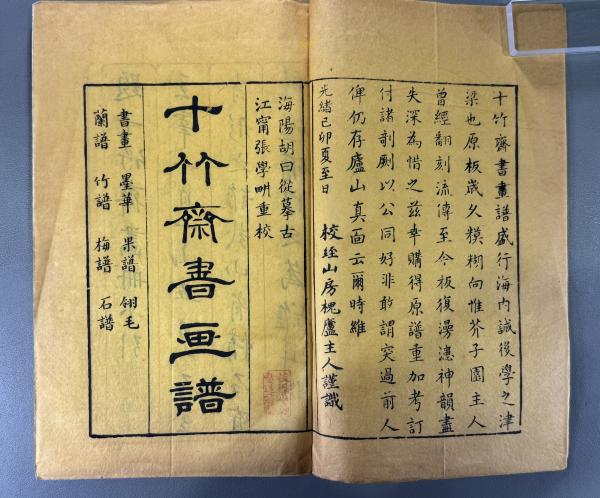 十竹齋書畫譜盛行海內誠後學之津
梁也原板歲久糢糊向惟芥子園主人
曾經翻刻流傳至今板復漫漶神韻盡
失深為惜之茲幸購得原譜重加考訂
付諸剞劂以公同好非敢謂突過前人
俾仍存廬山真面云爾時維
光緒己卯夏至日
校經山房槐廬主人謹識
海陽胡曰從摹古
江甯張學畊重校
十竹齋書画譜
書畫 墨華 果譜 翎毛
蘭譜 竹譜 梅譜 石譜